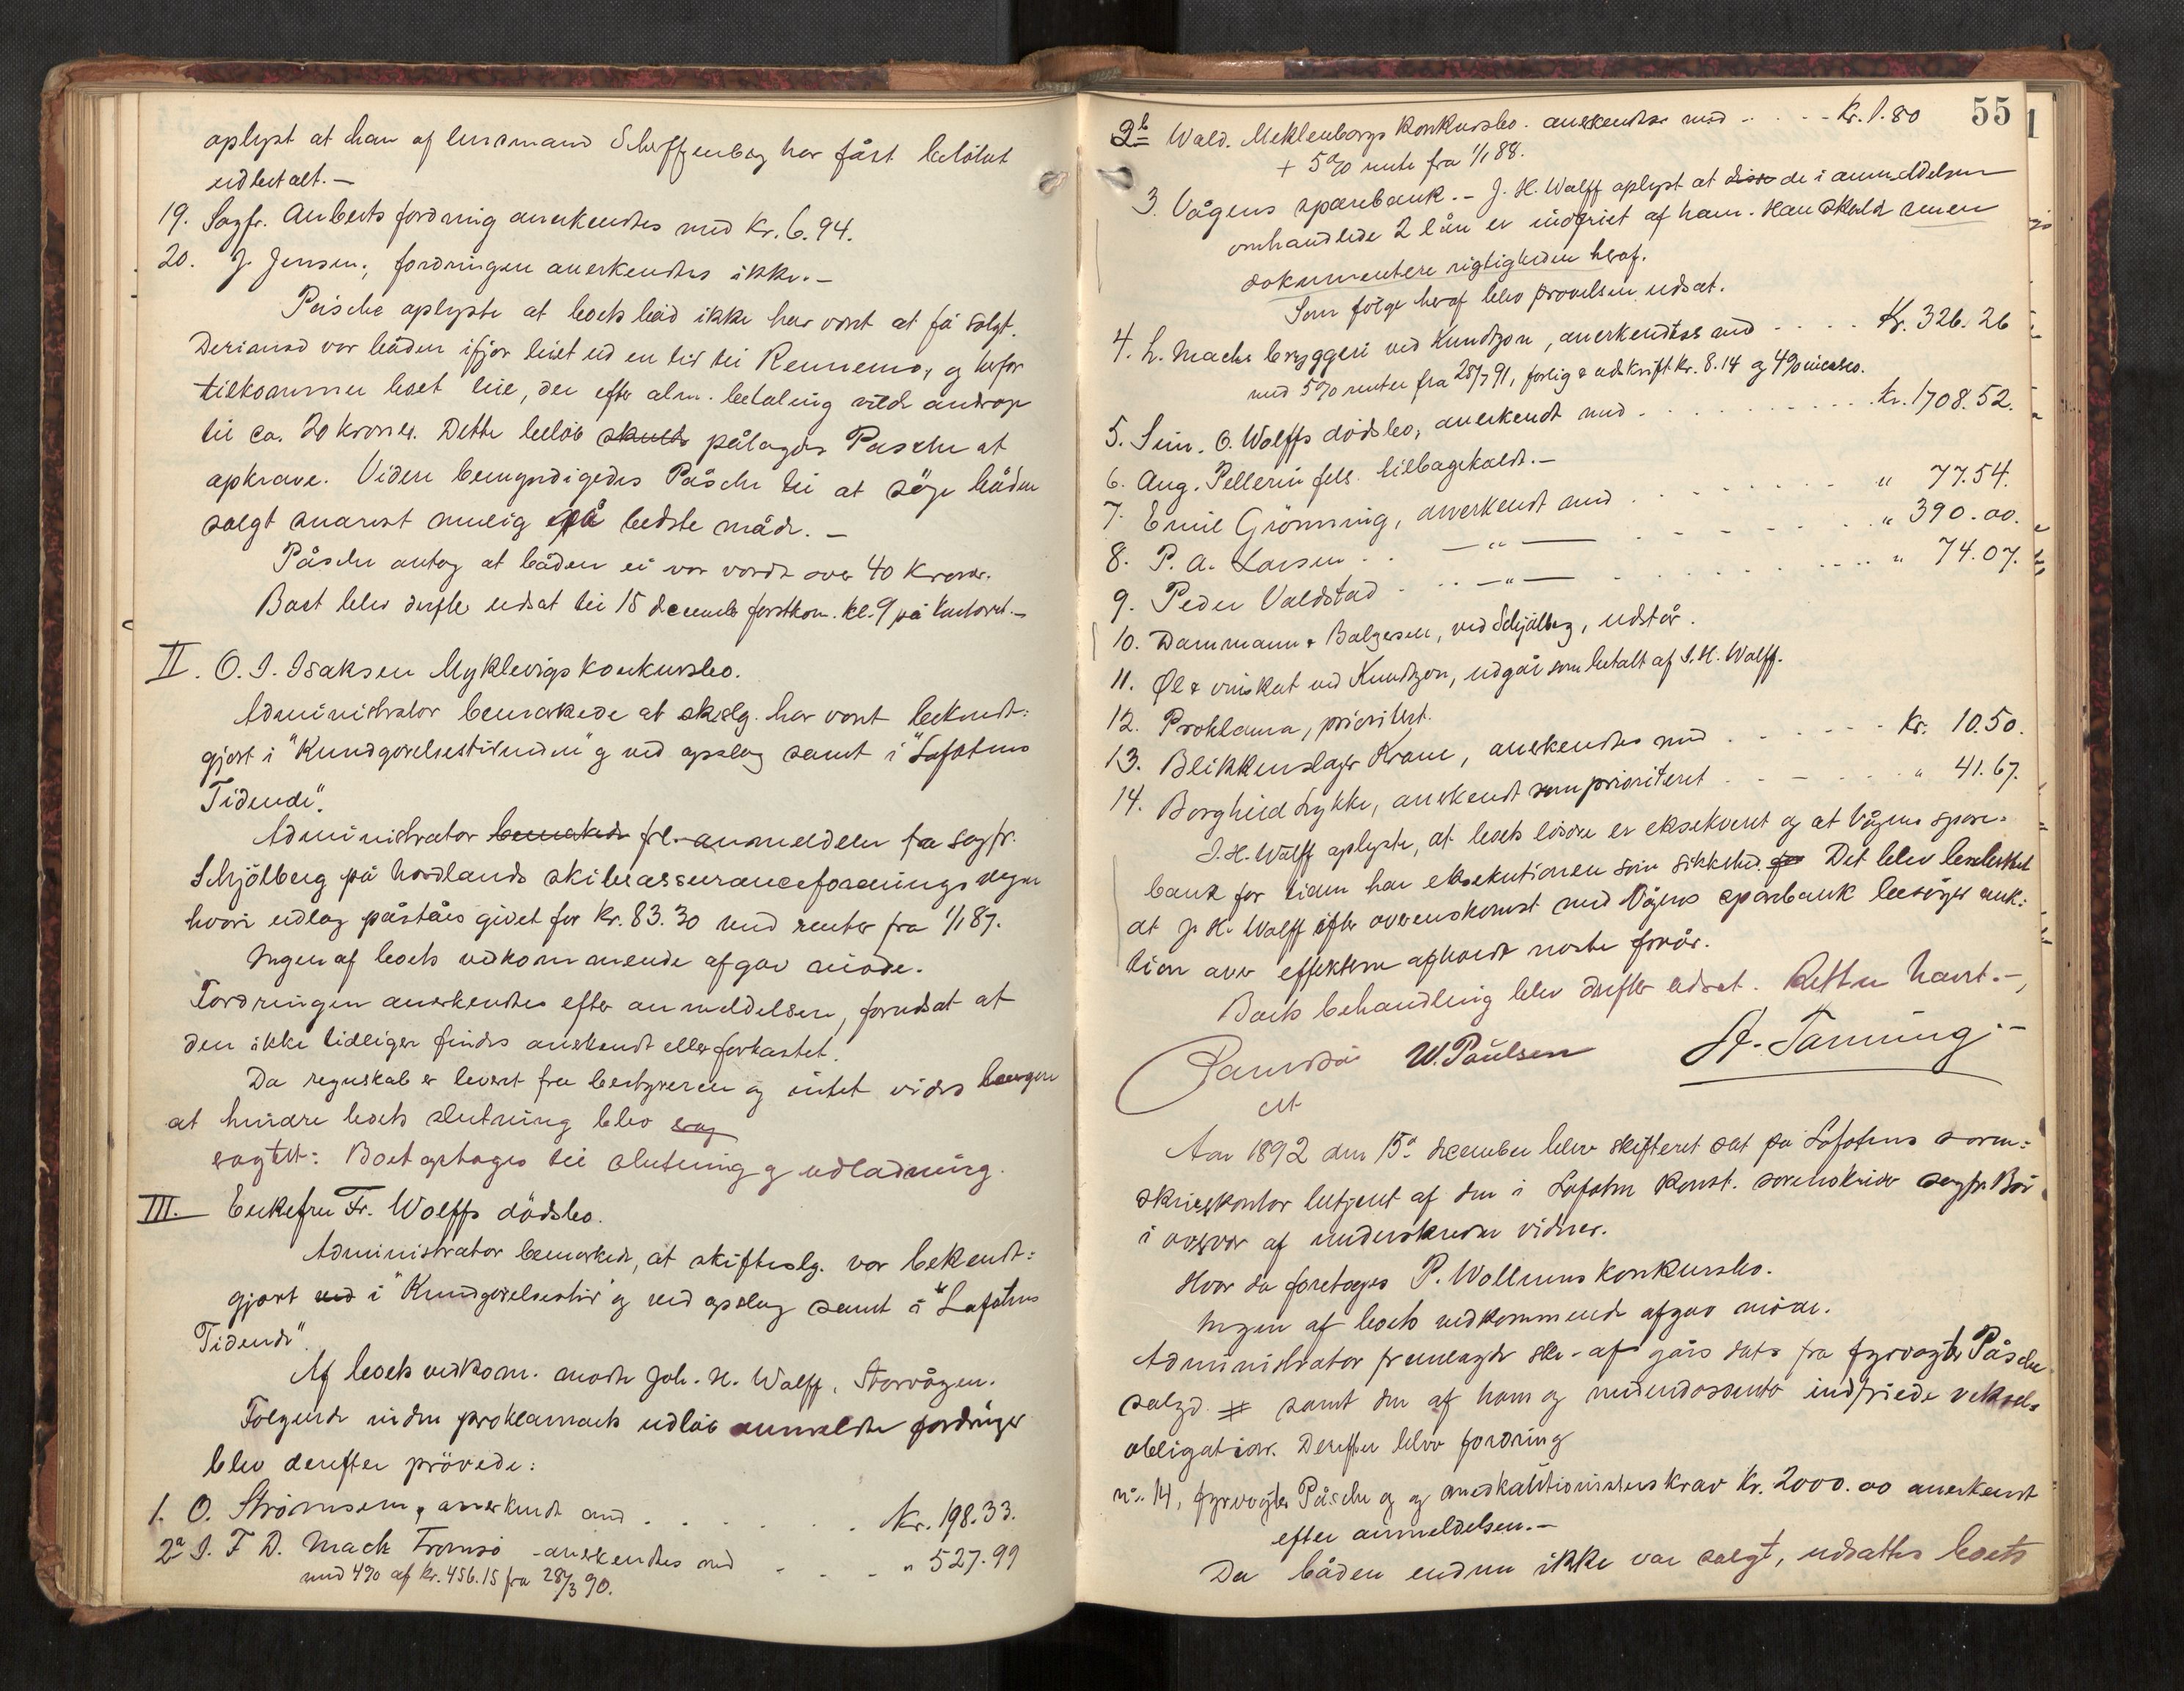 oplyst at han af lensmand Scheffenberg har fåt beløbet
udbetalt.—
19. Sagfr. Auberts fordring anerkendtes med Kr. 6.94.
20. J. Jensen; fordringen anerkendtes ikke.—
Påsche oplyste at boets båd ikke har vært at få solgt.
Derimod var båden ifjor leiet ud en tid til Rennemo, og herfor
tilkommer boet leie, der efter alm. betaling vilde andrage
til ca. 20 kroner. Dette beløb skulde pålagdes Pasche at
opkræve. Videre bemyndigedes Påsche til at søge båden
solgt snarest mulig på bedste måde.—
Påsche antog at båden ei var værdt over 40 kroner.
Boet blev derefter udsat til 15 december førstkom. kl. 9 på kontoret.—
II. O. I. Isaksen Myklevigs konkursbo.
Administrator bemærkede at skslg. har vært bekendt-
gjort i "Kundgørelsestidenden" og ved opslag samt i "Lofotens
Tidende".
Administrator bemærkede frl. anmeldelse fra sagfr.
Schjølberg på Nordlands skibsassuranceforenings vegne
hvori udlæg påståes givet for Kr. 83.30 med renter fra 1/1 87.
Ingen af boets vedkommende afgav møde.
Fordringen anerkendtes efter anmeldelsen, forudsat at
den ikke tidligere findes anerkendt eller forkastet.
Da regnskab er levert fra bestyreren og intet vides længere
at hindre boets slutning blev sag
sagtet: Boet optages til slutning og udlodning.
III. Enkefru Fr. Wolffs dødsbo.
Administrator bemærkede, at skifteslg. var bekendt-
gjort ved i "Kundgørelsestid" og ved opslag samt i "Lofotens
Tidende".
Af boets vedkom. mødte Joh. H. Wolff, Storvågen.
Følgende inden proklamaets udløb anmeldte fordringer
blev derefter prøvede:
1. O. Strømsem, anerkendt med . . . . . . Kr. 198.33.
2a I. F D. Mack Tromsø anerkendtes med - - - " 527.99
med 4% af Kr. 456.15 fra 28/3 90.
55
2b Wald. Meklenborgs konkursbo. anerkendtes med . . . . Kr. 1.80
+ 5% rente fra 1/1 88.
3. Vågens sparebank.— J. H. Wolff oplyst at disse de i anmeldelsen
omhandlede 2 lån er indfriet af ham. Han skulde senere
dokumentere rigtigheden heraf.
Som følge heraf blev prøvelsen udsat.
4. L. Macks bryggeri ved Knudtzon, anerkendtes med . . . . Kr. 326.26
med 5% renter fra 28/7 91, forlig & udskrift Kr. 8.14 og 4% incasso.
5. Sim. O. Wolffs dødsbo, anerkendt med . . . . . . . . . Kr. 1708.52.
6. Aug. Pellerin fils. tilbagekaldt.—
7. Emil Grönning, anerkendt med . . . . . . . " 77.54.
8. P. A. Larsen . . — " — . . . . . . . " 390.00.
9. Peder Valdstad . . . — " — . . . . . . . " 74.07.
10. Dammann & Balgersen, ved Schjølberg, udstår.
11. Øl & vinskat ved Knudtzon, udgår som betalt af J. H. Wolff.
12. Proklama, prioritert.
13. Blikkenslager Krane, anerkendtes med . . . . . . Kr. 10.50.
14. Borghild Lykke, anerkendt som prioriteret . . . . . . " 41.67.
J. H. Wolff oplyste, at boets løsøre er eksekveret og at Vågens spare-
bank for tiden har eksekutionen som sikkerhed. Det blev besluttet
at J. H. Wolff efter overenskomst med Vågens sparebank besørger auk-
tion over effekterne afholdt næste forår.
Boets behandling blev derefter udsat. Retten hævet.—
W. Paulsen A. Tanning.—
Aar 1892 den 15de december blev skifteret sat på Lofotens soren-
skriverkontor betjent af den i Lofoten konst. sorenskriver sagfr. Boi
i overvær af underskrevne vidner.
Hvor da foretoges P. Wollmuns konkursbo.
Ingen af boets vedkommende afgav møde.
Administrator fremlagde skr. af gårs dato fra fyrvogter Påsche
salgd. samt den af ham og medendossento indfriede veksel-
obligation. Derefter blev fordring
no. 14, fyrvogter Påsche og og medkautionisters krav Kr. 2000.00 anerkendt
efter anmeldelsen.—
Da båden endnu ikke var solgt, udsattes boets